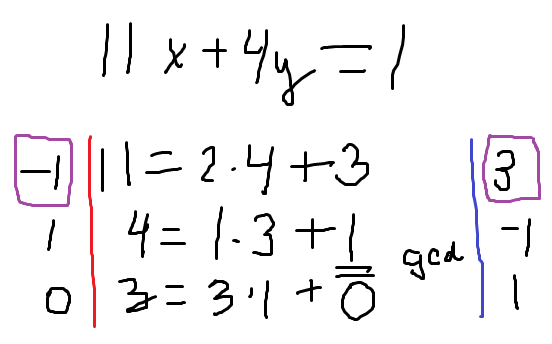 11x+4y=1
-1 11=2·4+3 3
1 4=1·3+1 gcd -1
0 3=3·1+0 1